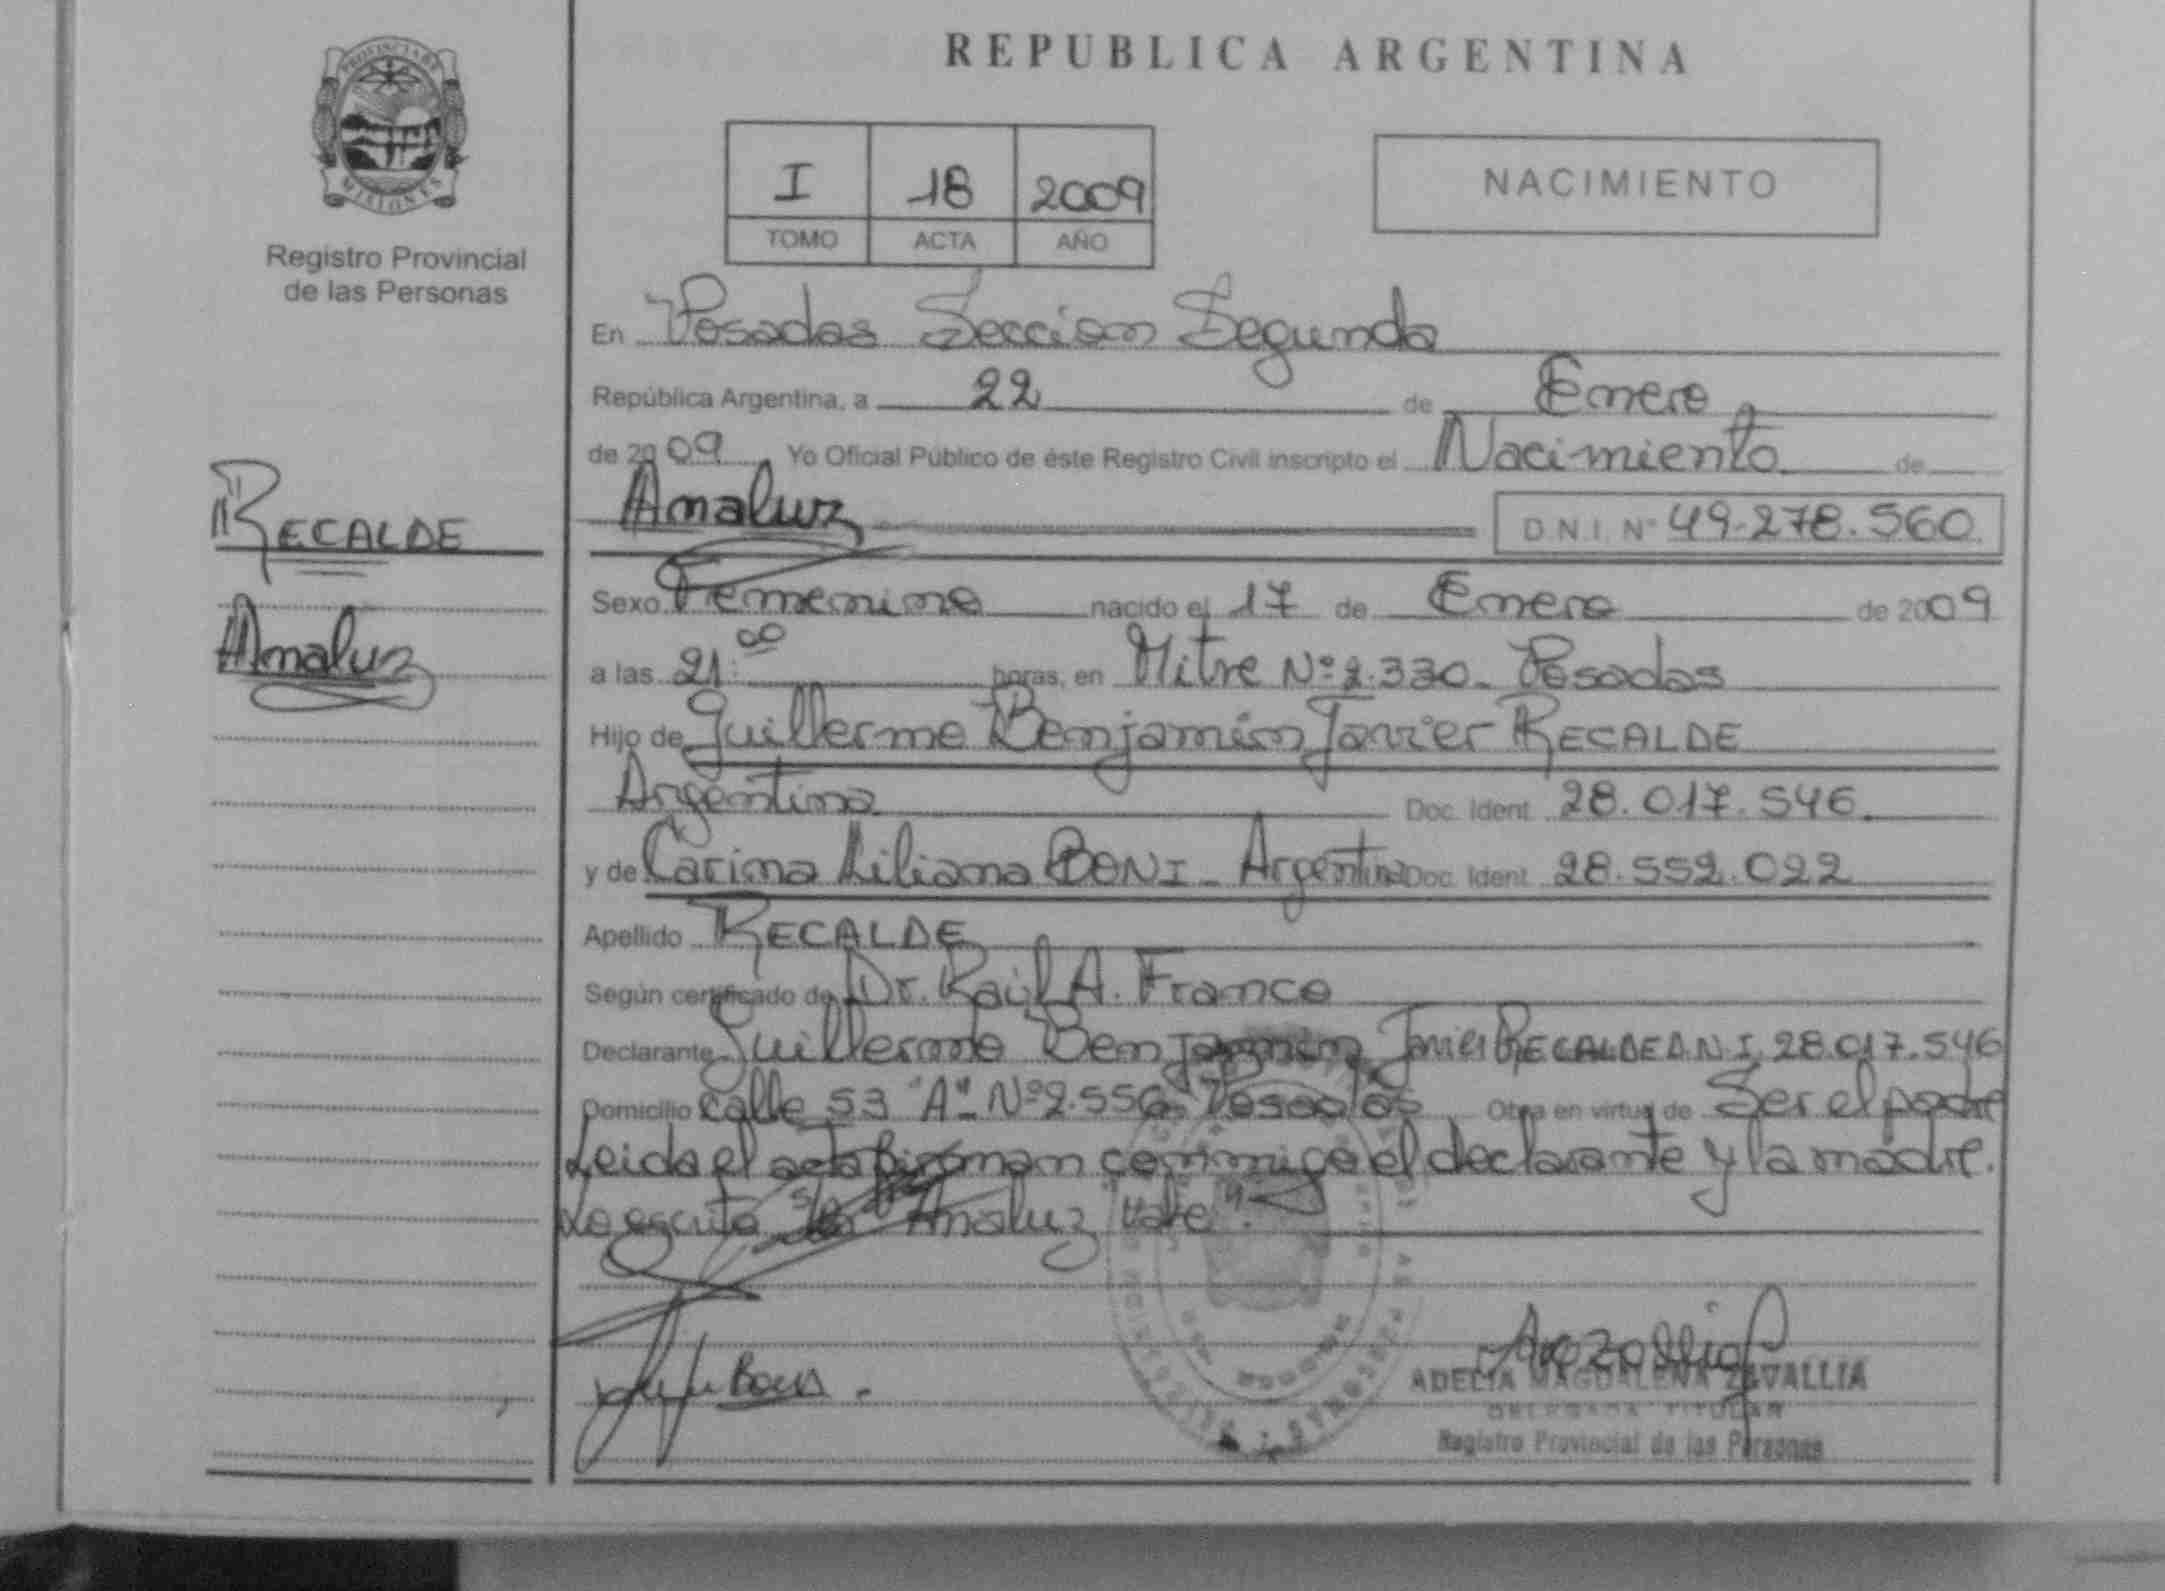 REPUBLICA ARGENTINA
PROVINCIA DE
MISIONES
Registro Provincial
de las Personas
I 18 2009
TOMO ACTA AÑO
NACIMIENTO
En Posadas Seccion Segunda
República Argentina, a 22 de Enero
de 2009 Yo Oficial Público de éste Registro Civil inscripto el Nacimiento de
Analuz D.N.I. Nº 49.278.560
RECALDE
Analuz
Sexo Femenino nacido el 17 de Enero de 2009
a las 21:00 horas, en Mitre Nº 2.330 - Posadas
Hijo de Guillermo Benjamín Javier RECALDE
Argentino Doc. Ident. 28.017.546
y de Carina Liliana BONI - Argentina Doc. Ident. 28.552.022
Apellido RECALDE
Según certificado de Dr. Raúl A. Franco
Declarante Guillermo Benjamin Javier RECALDE D.N.I. 28.017.546
Domicilio Calle 53 "A" Nº 2.556 Posadas Obra en virtud de Ser el padre
Leida el acta firman conmigo el declarante y la madre.
Lo escrito s/r "Analuz" Vale".
ADELIA MAGDALENA ZAVALLIA
DELEGADA TITULAR
Registro Provincial de las Personas